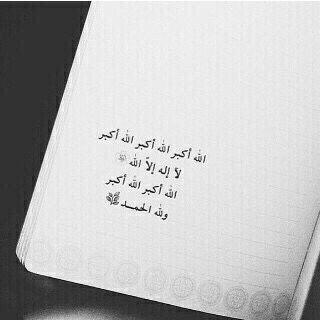 الله أكبر الله أكبر الله أكبر
لا إله إلاّ الله
الله أكبر الله أكبر
ولله الحمـد